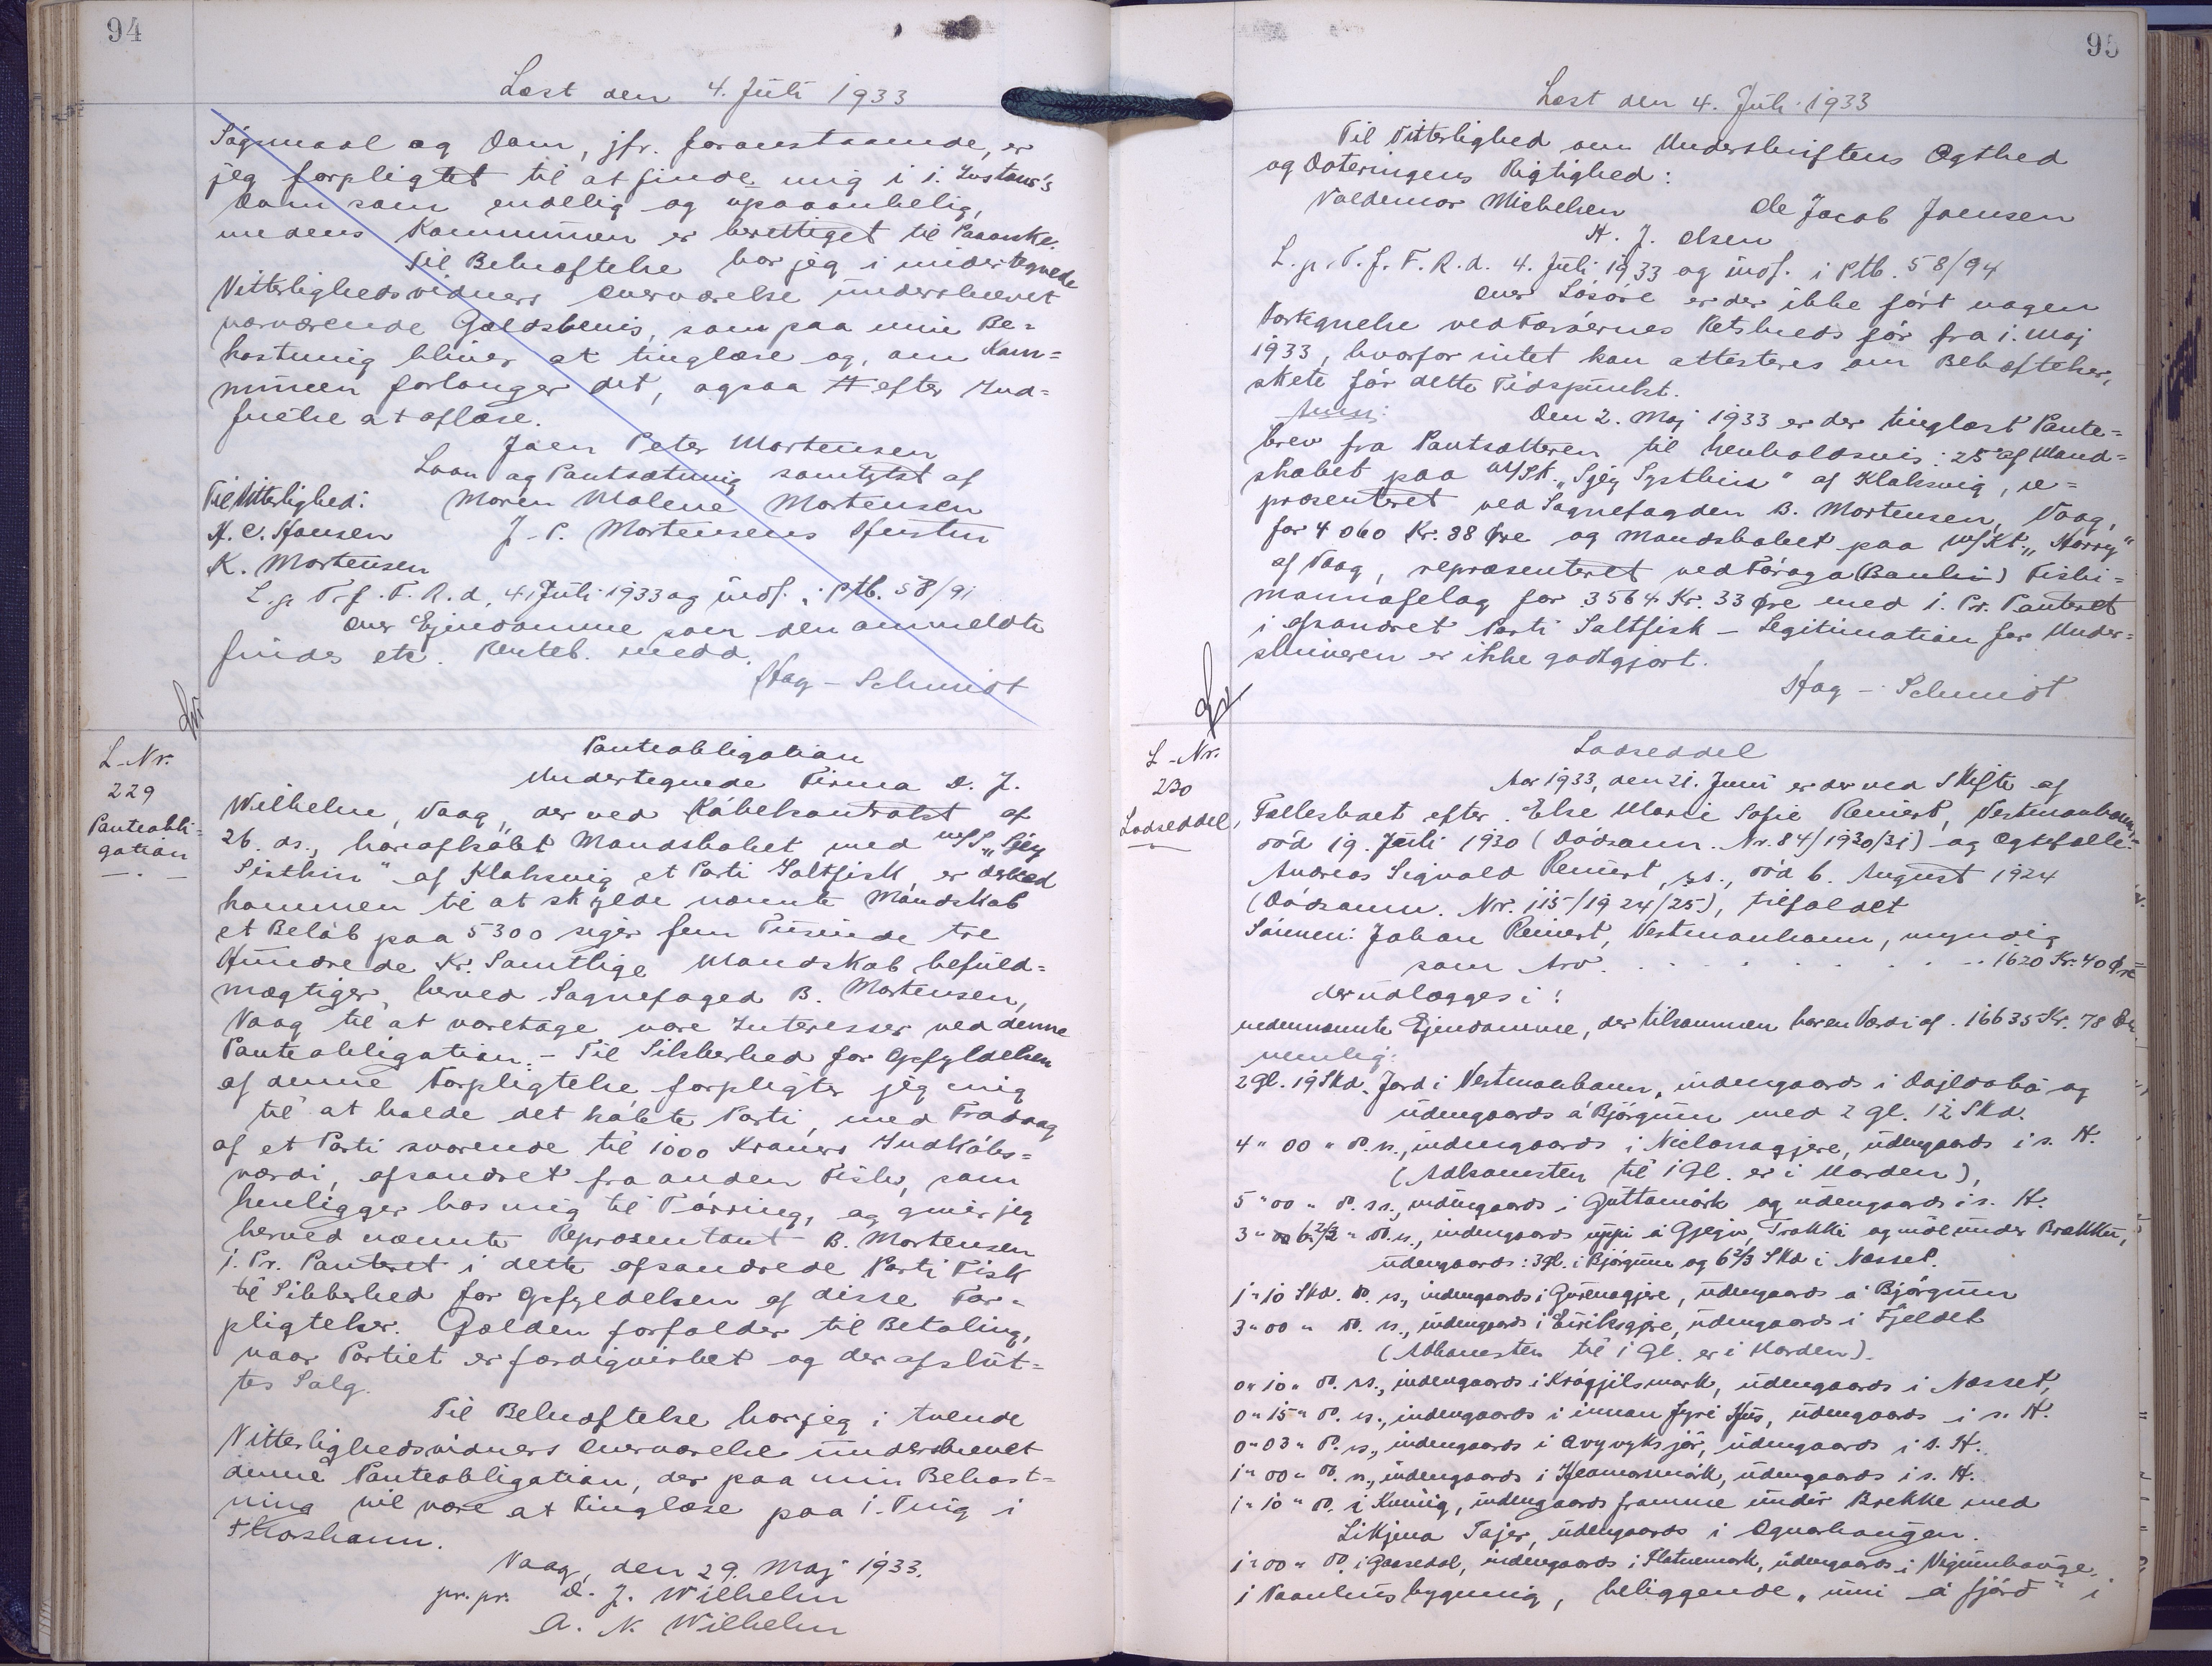 94
Læst den 4. Juli 1933
Sógsmaal og Dom, jfr. foranstaaende, er
jeg forpligtet til at finde mig i 1. Instans's
Dom som endelig og upaaankelig,
medens Kommunen er berettiget til Paaanke.
Til Bekræftelse har jeg i undertegnede
Vitterlighedsvidners Overværelse underskrevet
nærværende Gældsbevis, som paa min Be-
kostning bliver at tinglæse og, om Kom-
munen forlanger det, ogsaa efter Ind-
frielse at aflæse.
Joen Peter Mortensen
Laan og Pantsætning samtykt af
Til Vitterlighed: Maren Malene Mortensen
H. C. Hansen J. P. Mortensens Hustru
K. Mortensen
L. p. T. f. F. R. d. 4. Juli 1933 og indf. i Ptb. 58/91
Over Ejendomme som den anmeldte
findes etc. Panteb. medd.
Hag-Schmidt
L-Nr.
229
Panteobli-
gation
Panteobligation
Undertegnede Firma D. J.
Wilhelm, Vaag, der ved Købekontrakt af
26. ds., har afkøbt Mandskabet med m/S "Sjey
Systkin" af Klaksvig et Parti Saltfisk, er derved
kommen til at skylde nævnte Mandskab
et Beløb paa 5300 siger fem Tusinde tre
Hundrede Kr. Samtlige Mandskab befuld-
mægtiger herved Sognefoged B. Mortensen,
Vaag til at varetage vore Interesser ved denne
Panteobligation. - Til Sikkerhed for Opfyldelsen
af denne Forpligtelse forpligter jeg mig
til at holde det købte Parti, med Fradrag
af et Parti svarende til 1000 Kroners Indkøbs-
værdi, afsondret fra anden Fisk, som
henligger hos mig til Tørring, og giver jeg
herved nævnte Repræsentant B. Mortensen
1. Pr. Panteret i dette afsondrede Parti Fisk
til Sikkerhed for Opfyldelsen af disse For-
pligtelser. Gælden forfalder til Betaling,
naar Partiet er færdigvirket og der afslut-
tes Salg.
Til Bekræftelse har jeg i tvende
Vitterlighedsvidners Overværelse underskrevet
denne Panteobligation, der paa min Bekost-
ning vil være at tinglæse paa 1. Ting i
Thorshavn.
Vaag, den 29. Maj 1933.
pr. pr. D. J. Wilhelm
A. N. Wilhelm
95
Læst den 4. Juli 1933
Til Vitterlighed om Underskriftens Ægthed
og Dateringens Rigtighed:
Valdemar Michelsen Ole Jacob Joensen
H. J. Olsen
L. p. T. f. F. R. d. 4. Juli 1933 og indf. i Ptb. 58/94
Over Løsøre er der ikke ført nogen
Fortegnelse ved Færøernes Retskreds før fra 1. Maj
1933, hvorfor intet kan attesteres om Behæftelser,
skete før dette Tidspunkt.
Anm: Den 2. Maj 1933 er der tinglæst Pante-
brev fra Pantsætteren til henholdsvis: 25 af Mand-
skabet paa M/Sk. "Sjey Systkin" af Klaksvig, re-
præsenteret ved Sognefogden B. Mortensen, Vaag,
for 4060 Kr. 88 Øre og Mandskabet paa M/Kt. "Harry"
af Vaag, repræsenteret ved Føroya (Banks) Fiski-
mannafelag for 3564 Kr. 33 Øre med 1. Pr. Panteret
i afsondret Parti Saltfisk - Legitimation for Under-
skriveren er ikke godtgjort.
Hag-Schmidt
L-Nr.
230
Lodseddel,
Lodseddel
Aar 1933, den 21. Juni er der ved Skifte af
Fællesboet efter Else Marie Sofie Reinert, Vestmanhavn,
død 19. Juli 1930 (Dødsanm. Nr. 84/1930/31) og Ægtefælle:
Andreas Sigvald Reinert, ss., død 6. August 1924
(Dødsanm. Nr. 115/1924/25), tilfaldet
Sønnen: Johan Reinert, Vestmanhavn, myndig
som Arv . . . . . . . . . . 1620 Kr. 40 Øre
der udlægges i:
nedennævnte Ejendomme, der tilsammen har en Værdi af . 16635 Kr. 78 Øre
nemlig:
2 Gl. 19 Skd. Jord i Vestmanhavn, indengaards i Dajldabø og
udengaards á Bjørgum med 2 gl. 12 Skd.
4 " 00 " D. s., indengaards i Niclasagjere, udengaards i s. H.
(Adkomsten til 1 Gl. er i Uorden),
5 " 00 " D. ss., indengaards i Guttamørk og udengaards i s. H.
3 " 6 2/3 " D. s., indengaards uppi á Gjegv, Trøkki og niðunder Brekku,
udengaards: 3 gl. i Bjørgum og 6 2/3 Skd i Nesset.
1 " 10 Skd. D. s., indengaards i Gurenagjere, udengaards á Bjørgum
3 " 00 " D. s., indengaards i Eiriksgjere, udengaards i Fjeldet
(Adkomsten til 1 Gl. er i Uorden).
0 " 10 " D. ss., indengaards i Krógjilsmørk, udengaards i Nesset,
0 " 15 " D. s., indengaards i innan fyri Hus, udengaards i s. H.
0 " 03 " D. s., indengaards i , udengaards i s. H.
1 " 00 " D. s., indengaards i Heamarsmørk, udengaards i s. H.
1 " 10 " D. i Kvivig, indengaards framme under Brekke med
Likjena Tajer, udengaards i .
1 " 00 " D. i Gaasedal, indengaards i Flatnemørk, udengaards i .
1 Vaanhusbygning, beliggende "inni á fjørð" i